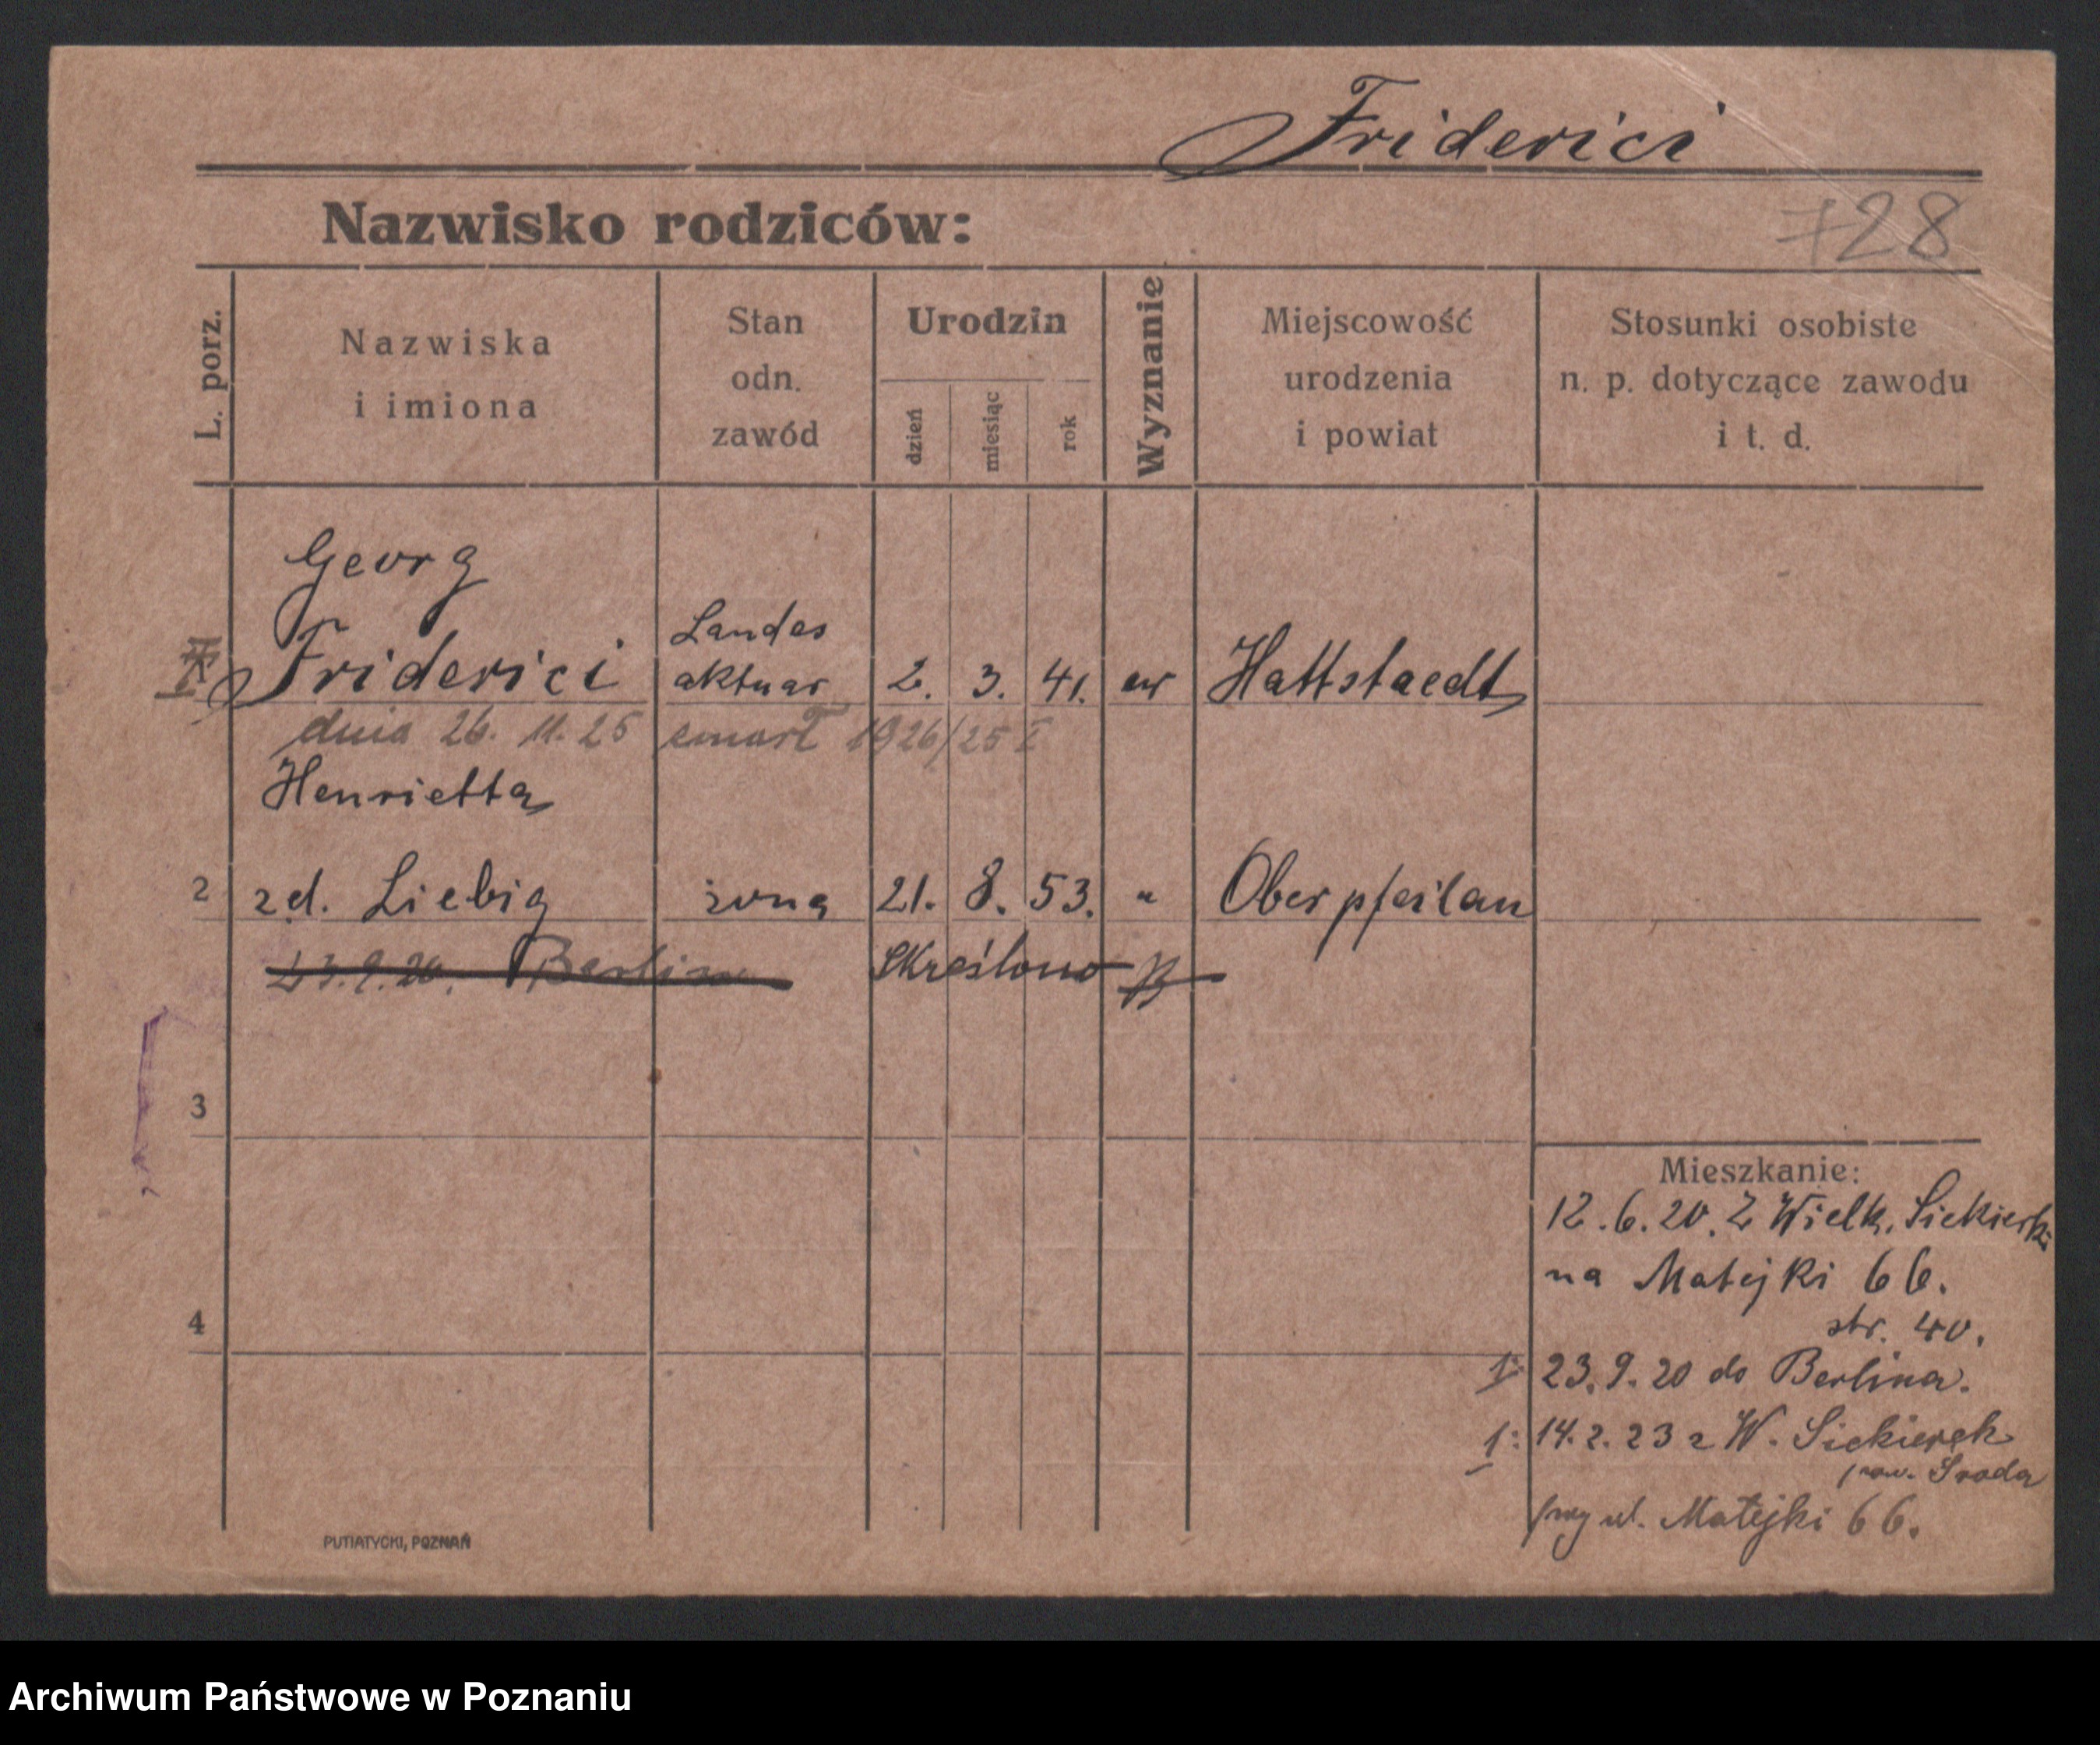 Friderici
Nazwisko rodziców:
728
L. porz.
Nazwiska
i imiona
Stan
odn.
zawód
Urodzin
dzień
miesiąc
rok
Wyznanie
Miejscowość
urodzenia
i powiat
Stosunki osobiste
n. p. dotyczące zawodu
i t. d.
Georg
Friderici
Landes
aktuar
2. 3. 41. ew Hattstaedt
dnia 26. 11. 25 zmarł 1926/25 I
Henrietta
2 zd. Liebig żona 21. 8. 53. " Oberpfeilau
23.9.20. Berlin Skreślono
3
4
Mieszkanie:
12.6.20. Z Wielk. Siekierki
na Matejki 66.
str. 40.
1: 23.9.20 do Berlina.
1: 14.2.23 z W. Siekierek
pow. Środa
przy ul. Matejki 66.
PUTIATYCKI, POZNAŃ
Archiwum Państwowe w Poznaniu